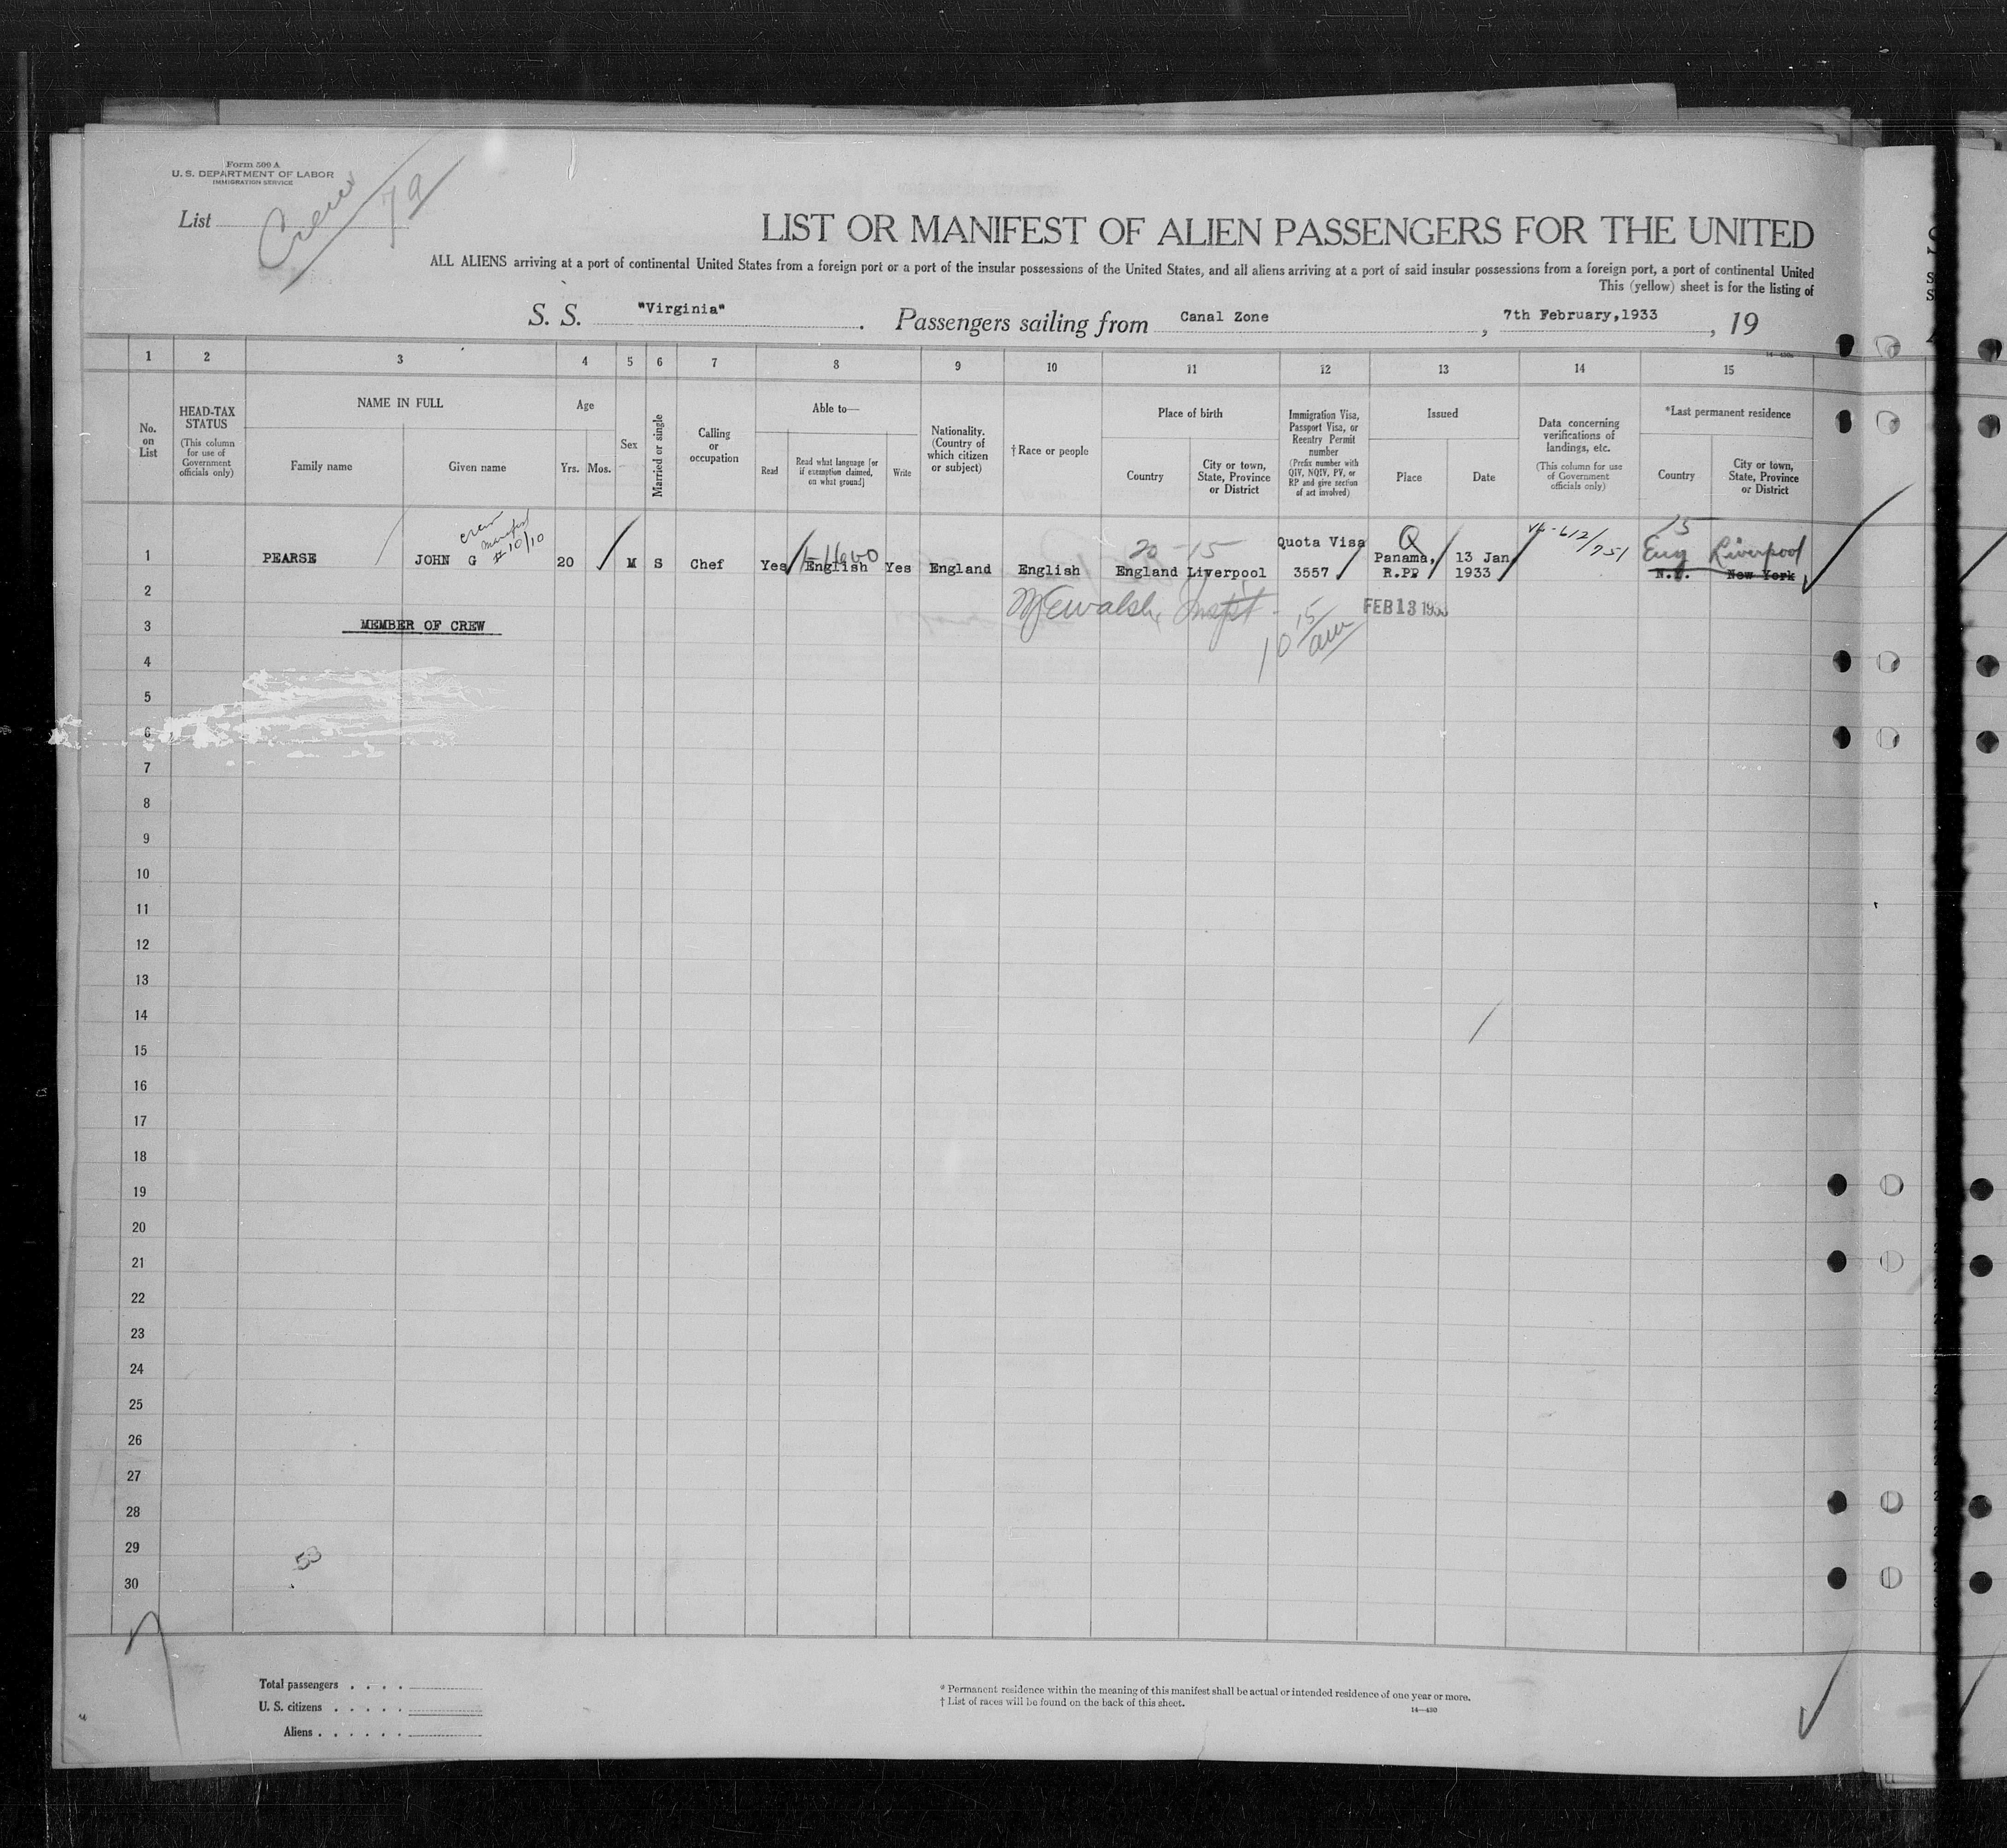 Form 500 A
U. S. DEPARTMENT OF LABOR
IMMIGRATION SERVICE
List
Crew
LIST OR MANIFEST OF ALIEN PASSENGERS FOR THE UNITED
ALL ALIENS arriving at a port of continental United States from a foreign port or a port of the insular possessions of the United States, and all aliens arriving at a port of said insular possessions from a foreign port, a port of continental United
This (yellow) sheet is for the listing of
S. S. "Virginia". Passengers sailing from Canal Zone, 7th February,1933, 19
1 2 3 4 5 6 7 8 9 10 11 12 13 14 15
No. on List
HEAD-TAX STATUS
(This column for use of Government officials only)
NAME IN FULL
Family name
Given name
Age
Yrs. Mos.
Sex
Married or single
Calling or occupation
Able to—
Read
Read what language [or if exemption claimed, on what ground]
Write
Nationality. (Country of which citizen or subject)
†Race or people
Place of birth
Country
City or town, State, Province or District
Immigration Visa, Passport Visa, or Reentry Permit number
(Prefix number with QIV, NQIV, PV, or RP and give section of act involved)
Issued
Place
Date
Data concerning verifications of landings, etc.
(This column for use of Government officials only)
*Last permanent residence
Country
City or town, State, Province or District
crew
manifest
#10/10
20-15
Quota Visa
Q
15
Eng Liverpool
1 PEARSE JOHN G 20 M S Chef Yes English Yes England English England Liverpool 3557 Panama, R.PP 13 Jan 1933 N.Y. New York
2
FEB 13 1933
10 15/am
3 MEMBER OF CREW
4
5
6
7
8
9
10
11
12
13
14
15
16
17
18
19
20
21
22
23
24
25
26
27
28
29
53
30
Total passengers . . . .
U. S. citizens . . . . .
Aliens . . . . . .
* Permanent residence within the meaning of this manifest shall be actual or intended residence of one year or more.
† List of races will be found on the back of this sheet.
14—430